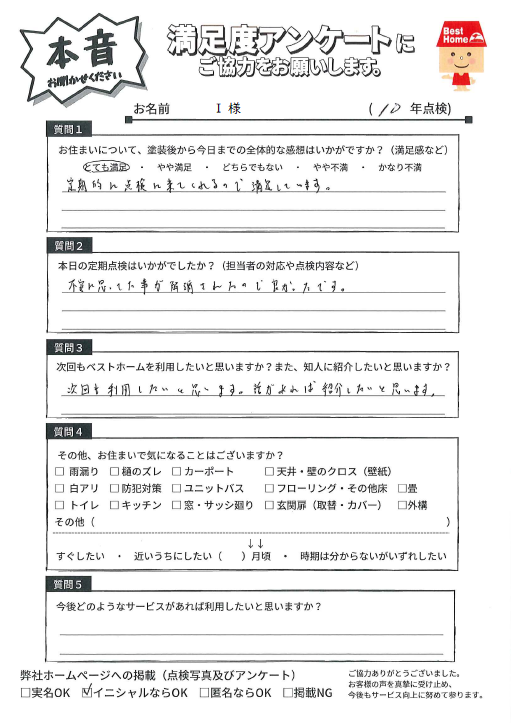 本音
お聞かせください
満足度アンケートに
ご協力をお願いします。
Best
Home
お名前 I 様 (10 年点検)
質問1
お住まいについて、塗装後から今日までの全体的な感想はいかがですか？（満足感など）
とても満足 ・ やや満足 ・ どちらでもない ・ やや不満 ・ かなり不満
定期的に点検に来てくれるので満足しています。
質問2
本日の定期点検はいかがでしたか？（担当者の対応や点検内容など）
不安に思ってた事が解消されたので良かったです。
質問3
次回もベストホームを利用したいと思いますか？また、知人に紹介したいと思いますか？
次回も利用したいと思います。話があれば紹介したいと思います。
質問4
その他、お住まいで気になることはございますか？
□ 雨漏り □ 樋のズレ □ カーポート □ 天井・壁のクロス（壁紙）
□ 白アリ □ 防犯対策 □ ユニットバス □ フローリング・その他床 □畳
□ トイレ □ キッチン □ 窓・サッシ廻り □ 玄関扉（取替・カバー） □外構
その他（ ）
↓↓
すぐしたい ・ 近いうちにしたい（ ）月頃 ・ 時期は分からないがいずれしたい
質問5
今後どのようなサービスがあれば利用したいと思いますか？
弊社ホームページへの掲載（点検写真及びアンケート）
□実名OK ☑イニシャルならOK □匿名ならOK □掲載NG
ご協力ありがとうございました。
お客様の声を真摯に受け止め、
今後もサービス向上に努めて参ります。